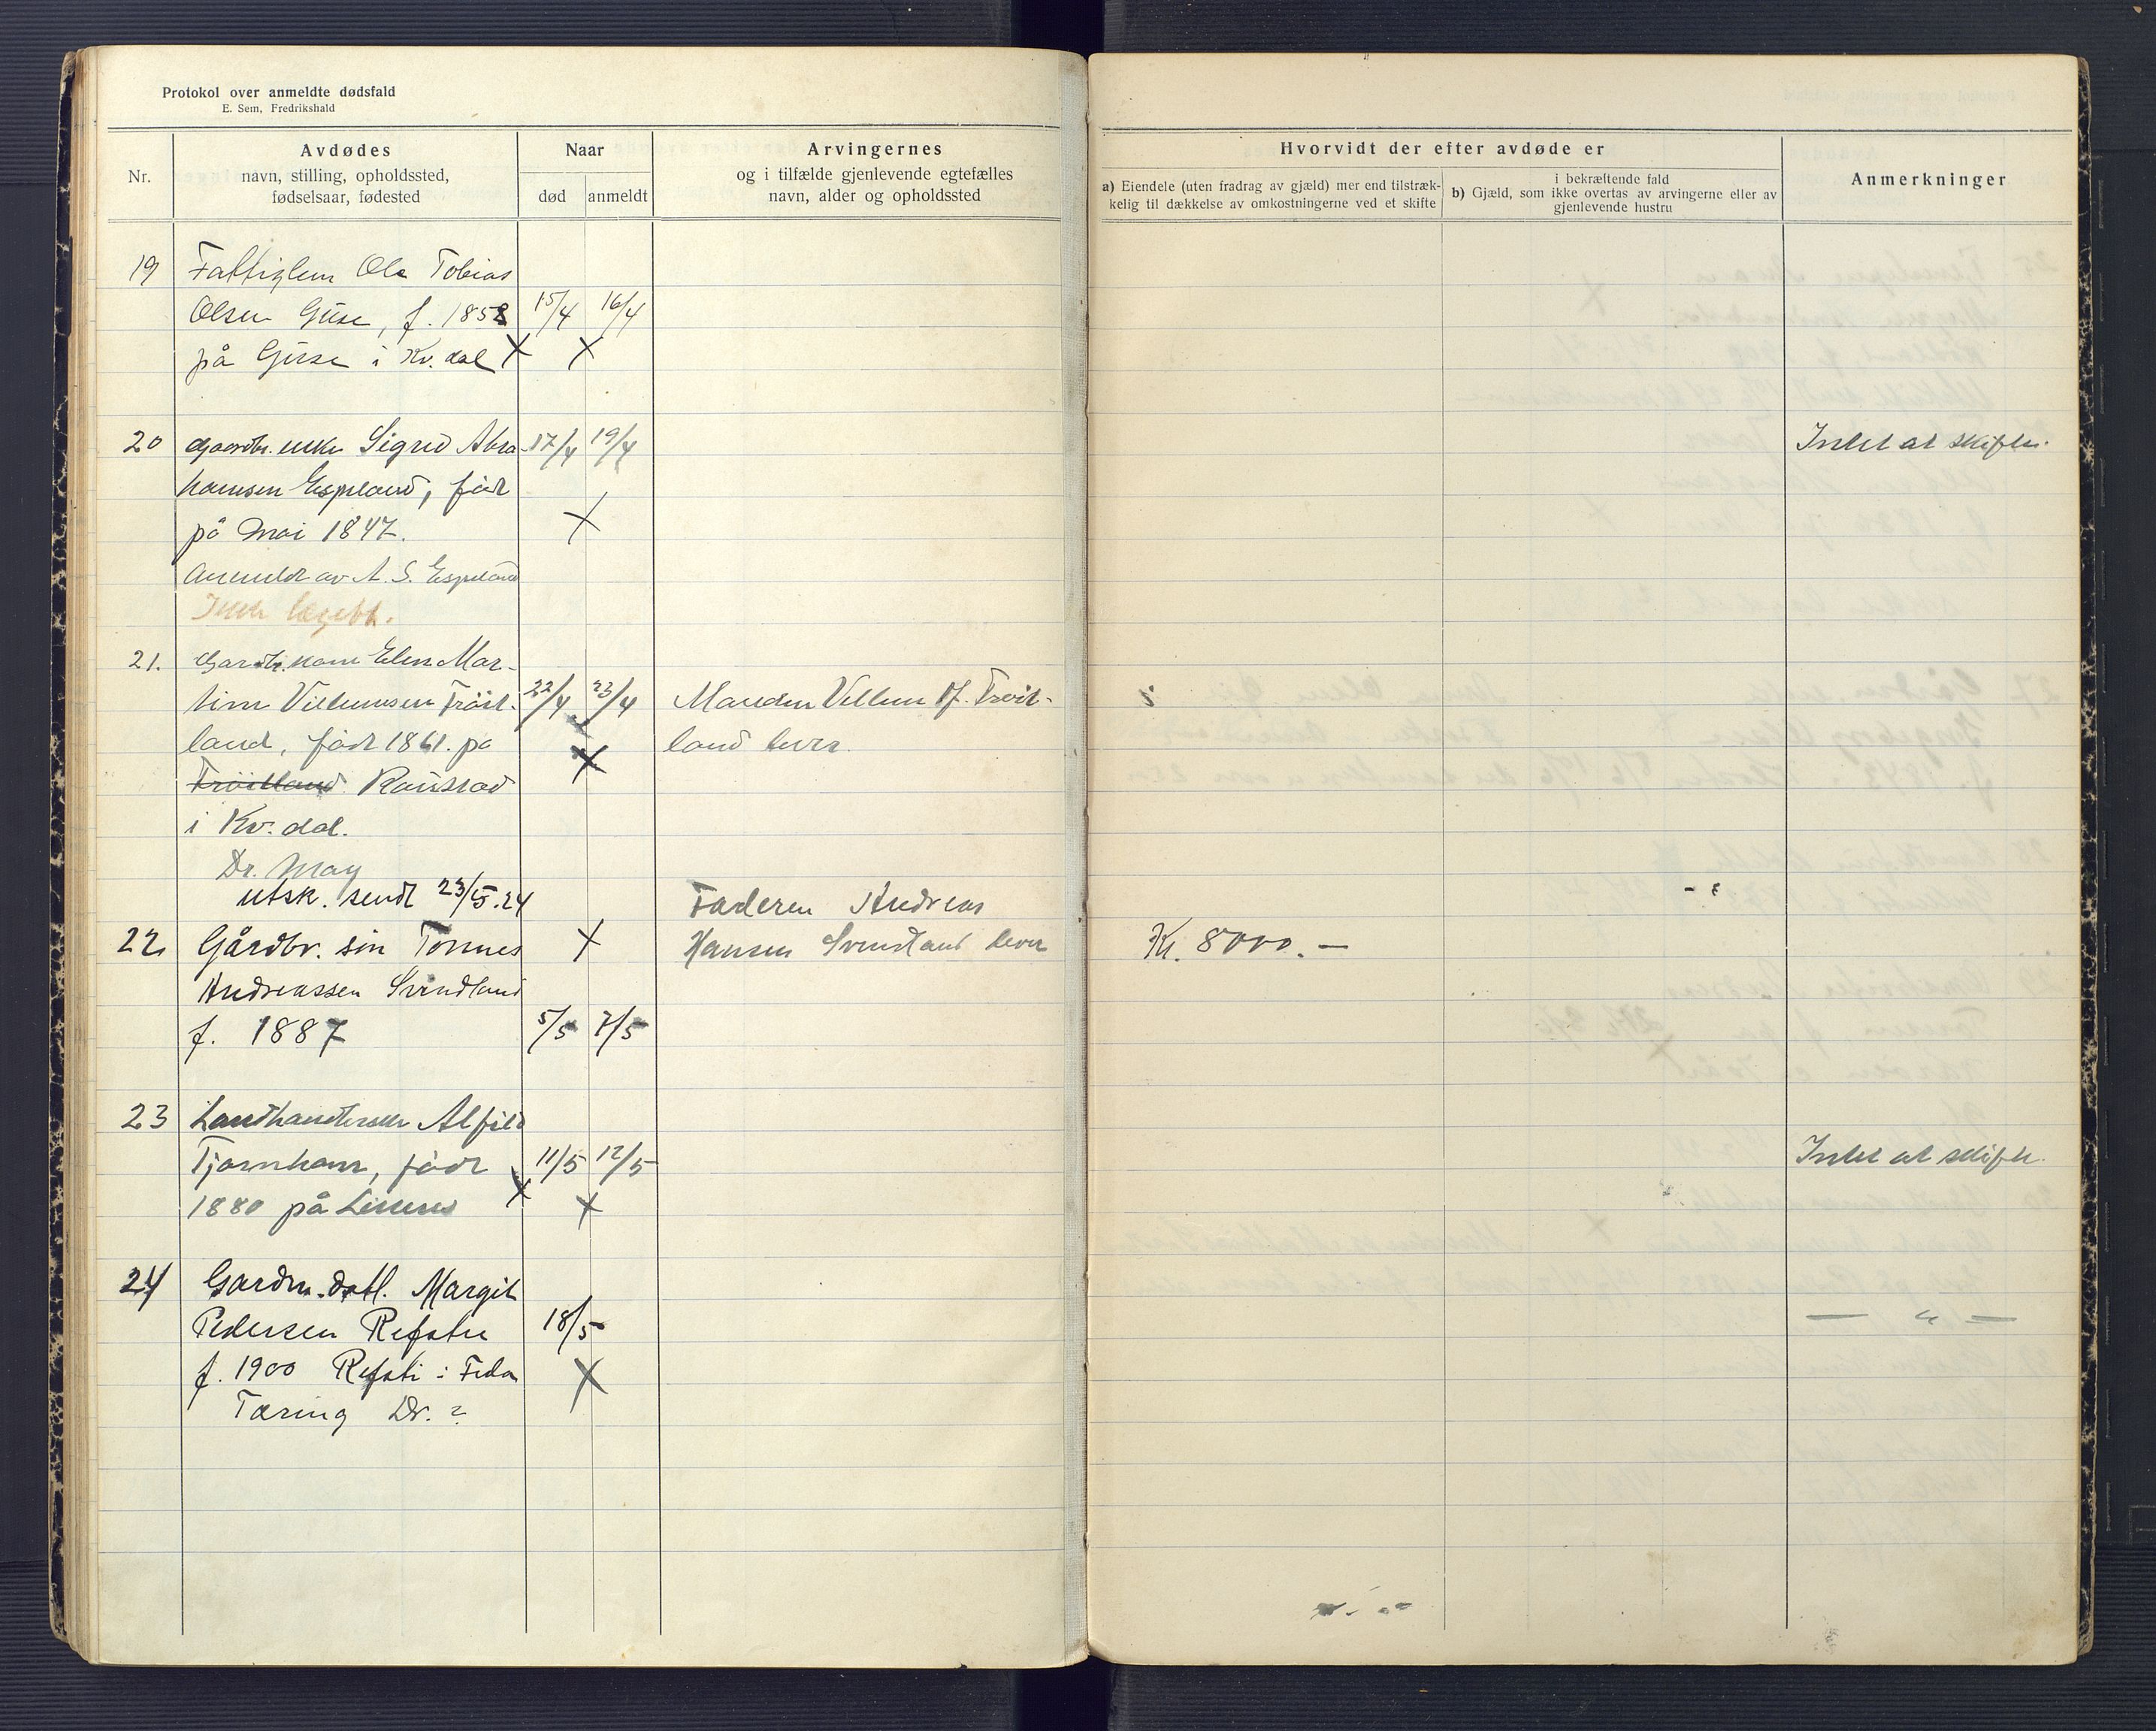 Protokol over anmeldte dødsfald
E. Sem, Fredrikshald
Nr.
Avdødes
navn, stilling, opholdssted,
fødselsaar, fødested
Naar
død
anmeldt
Arvingernes
og i tilfælde gjenlevende egtefælles
navn, alder og opholdssted
Hvorvidt der efter avdøde er
a) Eiendele (uten fradrag av gjæld) mer end tilstræk-
kelig til dækkelse av omkostningerne ved et skifte
i bekræftende fald
b) Gjæld, som ikke overtas av arvingerne eller av
gjenlevende hustru
Anmerkninger
19 Fattiglem Ole Tobias
Olsen Guse, f. 1858 15/4 16/4
på Guse i Kv. dal X X
20 Gaardbr. enke Sigrid Abra- 17/4 19/4 Intet at skifte.
hamsen Espeland, født
på Moi 1847. X
Anmeldt av A. S. Espeland
Ikke lægebh.
21. Gardbr. kone Elen Mar-
tine Villumsen Tröit- 22/4 23/4 Manden Villum Tröit-
land, født 1861. på land lever.
Tröitland Raustad X
i Kv. dal.
Dr. May
utsk. sendt 23/5.24 Faderen Andreas
22 Gårdbr. søn Tønnes X Hansen Svindland lever Kr. 8000.-
Andreassen Svindland
f. 1887 5/5 7/5
23 Landhandlerske Alfild
Tjomhom, født 11/5 12/5 Intet at skifte.
1880 på X X
24 Gardm. datt. Margit
Pedersen Refsti 18/5 — " —
f. 1900 Refsti i Feda X
Tæring Dr. ?